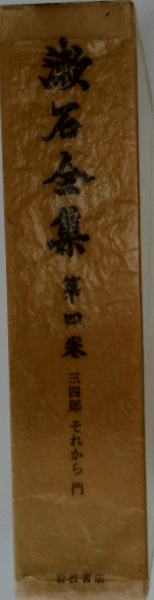 漱石全集 第四巻 三四郎 それから 門
岩波書店